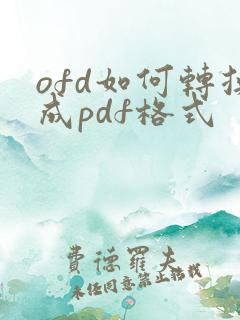 ofd如何轉換
成pdf格式
費德羅夫
未经同意禁止转载